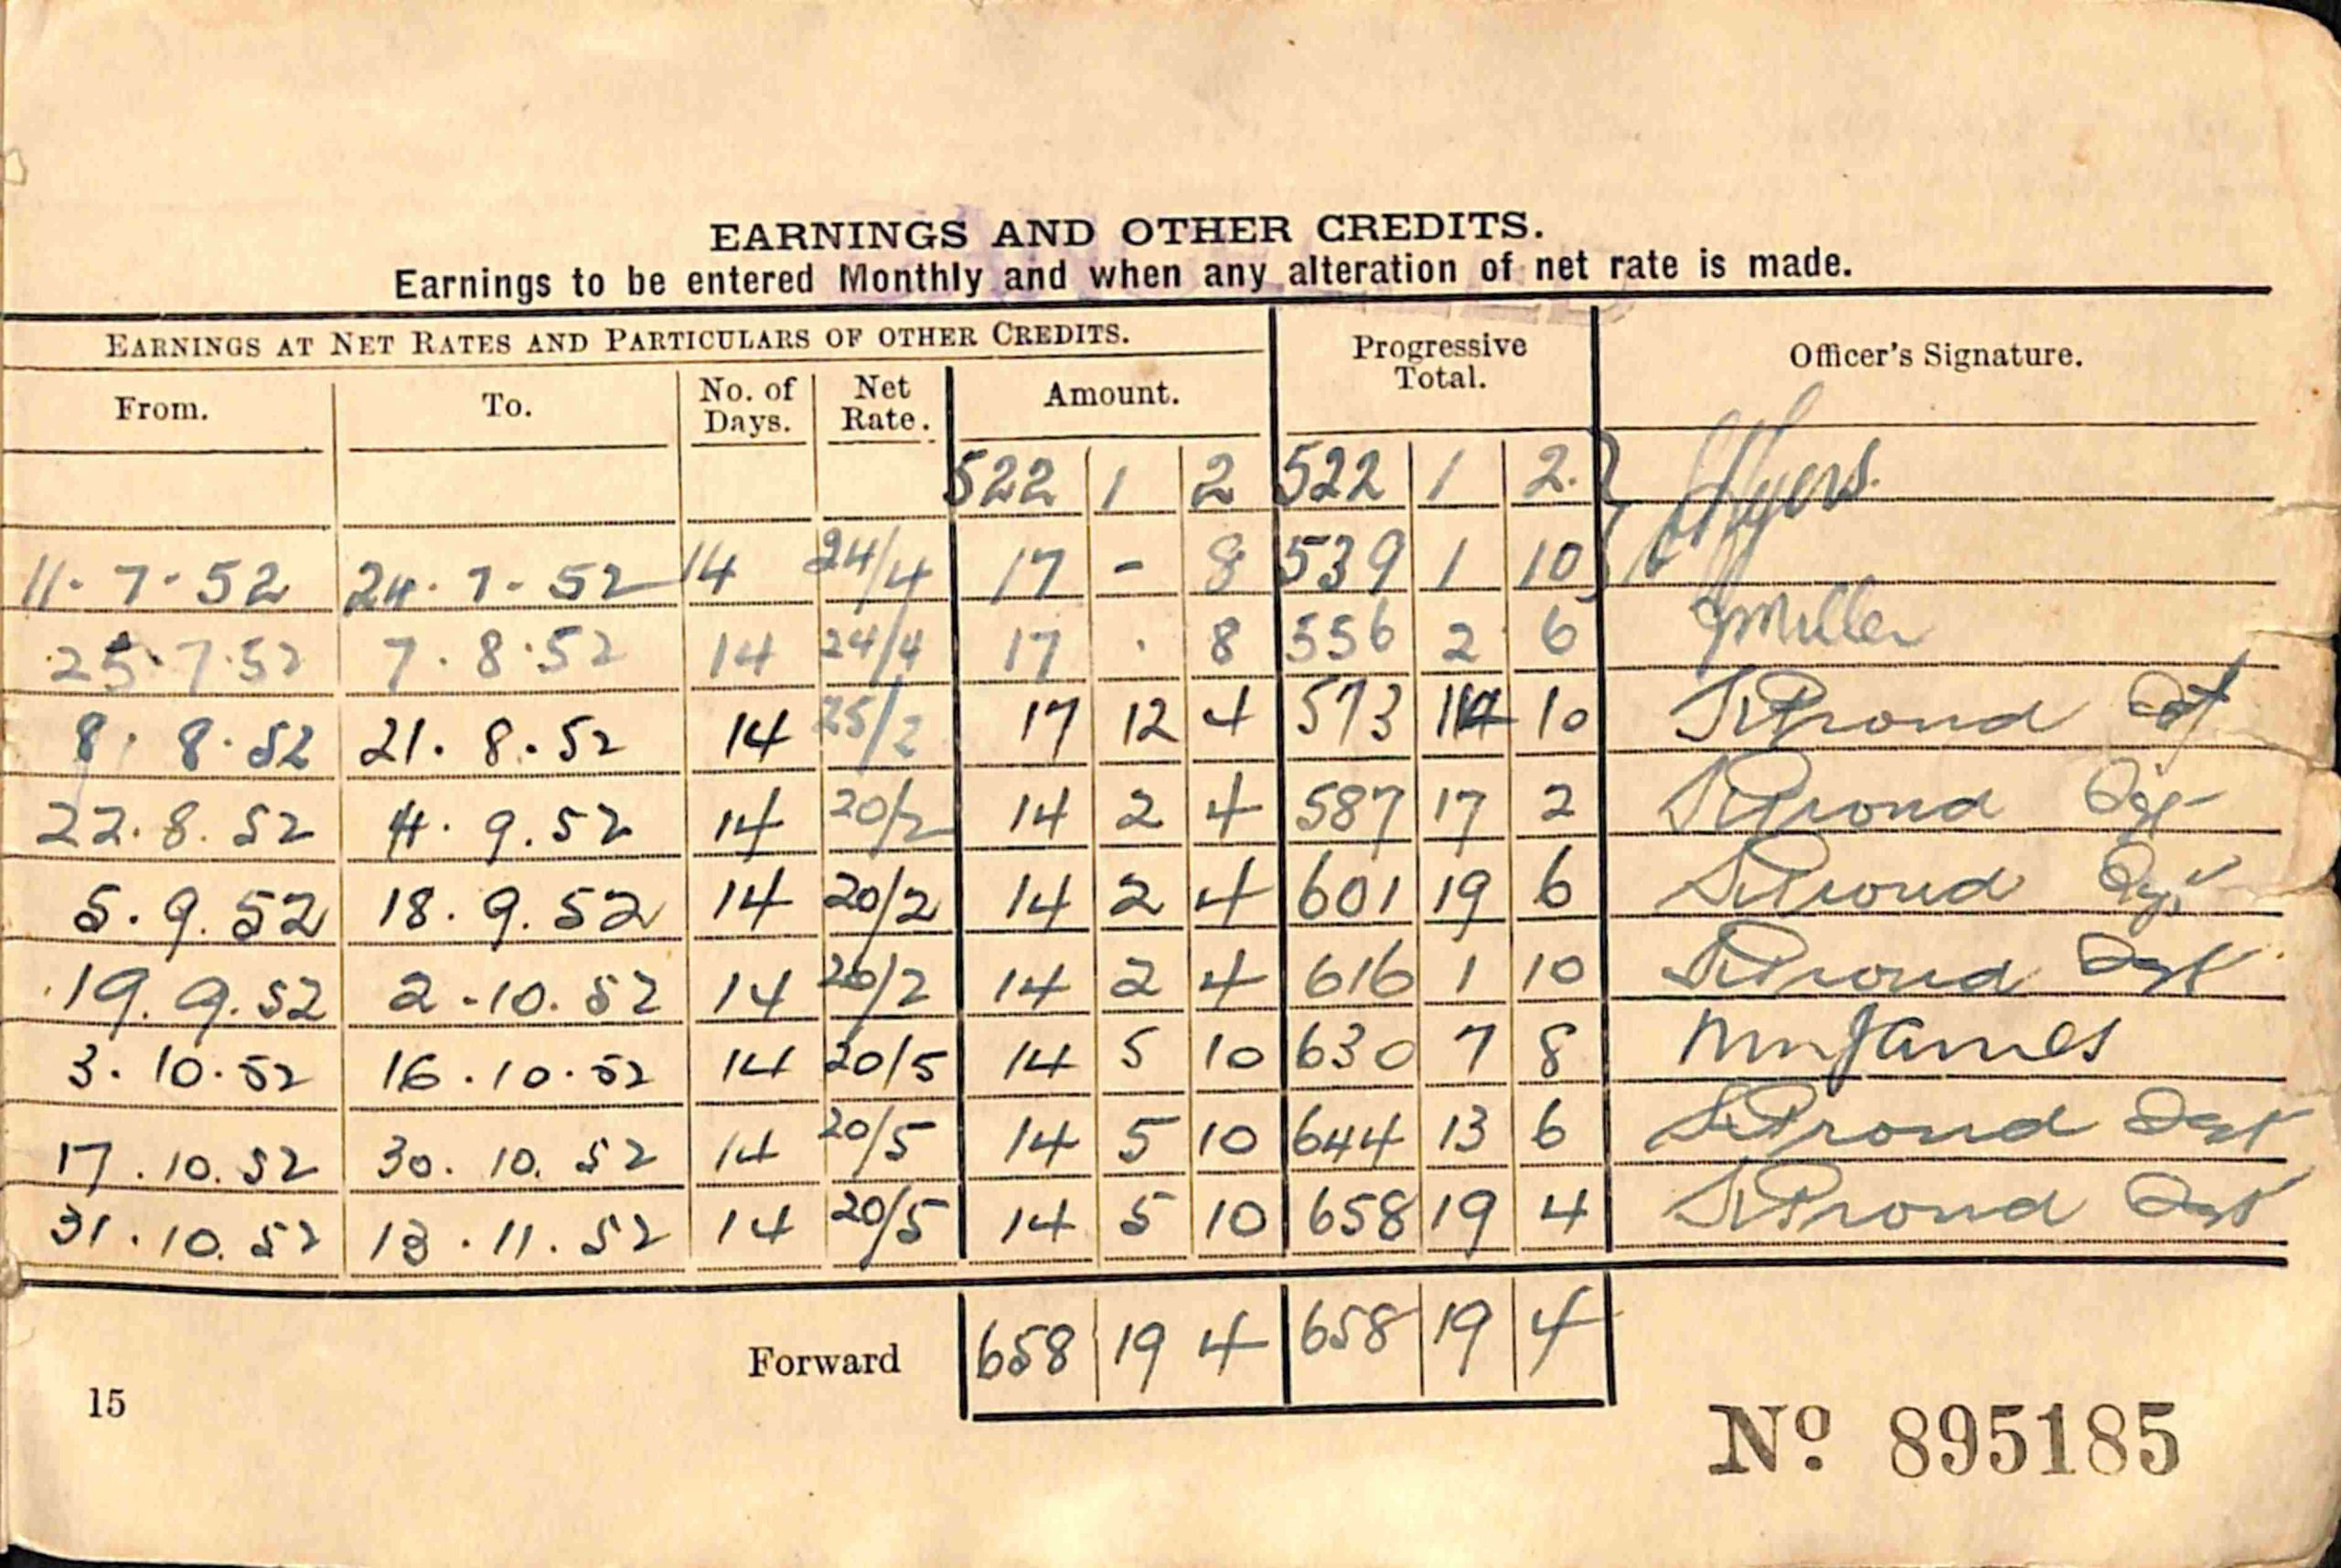 EARNINGS AND OTHER CREDITS.
Earnings to be entered Monthly and when any alteration of net rate is made.
EARNINGS AT NET RATES AND PARTICULARS OF OTHER CREDITS. Progressive Total. Officer's Signature.
From. To. No. of Days. Net Rate. Amount.
522 1 2 522 1 2.
11. 7. 52 24. 7. 52 14 24/4 17 - 8 539 1 10
25.7.52 7.8.52 14 24/4 17 . 8 556 2 6 Miller
8. 8. 52 21. 8. 52 14 25/2 17 12 4 573 14 10
22.8.52 4.9.52 14 20/2 14 2 4 587 17 2
5.9.52 18.9.52 14 20/2 14 2 4 601 19 6
19.9.52 2.10.52 14 20/2 14 2 4 616 1 10
3.10.52 16.10.52 14 20/5 14 5 10 630 7 8 James
17.10.52 30.10.52 14 20/5 14 5 10 644 13 6
31.10.52 13.11.52 14 20/5 14 5 10 658 19 4
Forward 658 19 4 658 19 4
15
Nº 895185